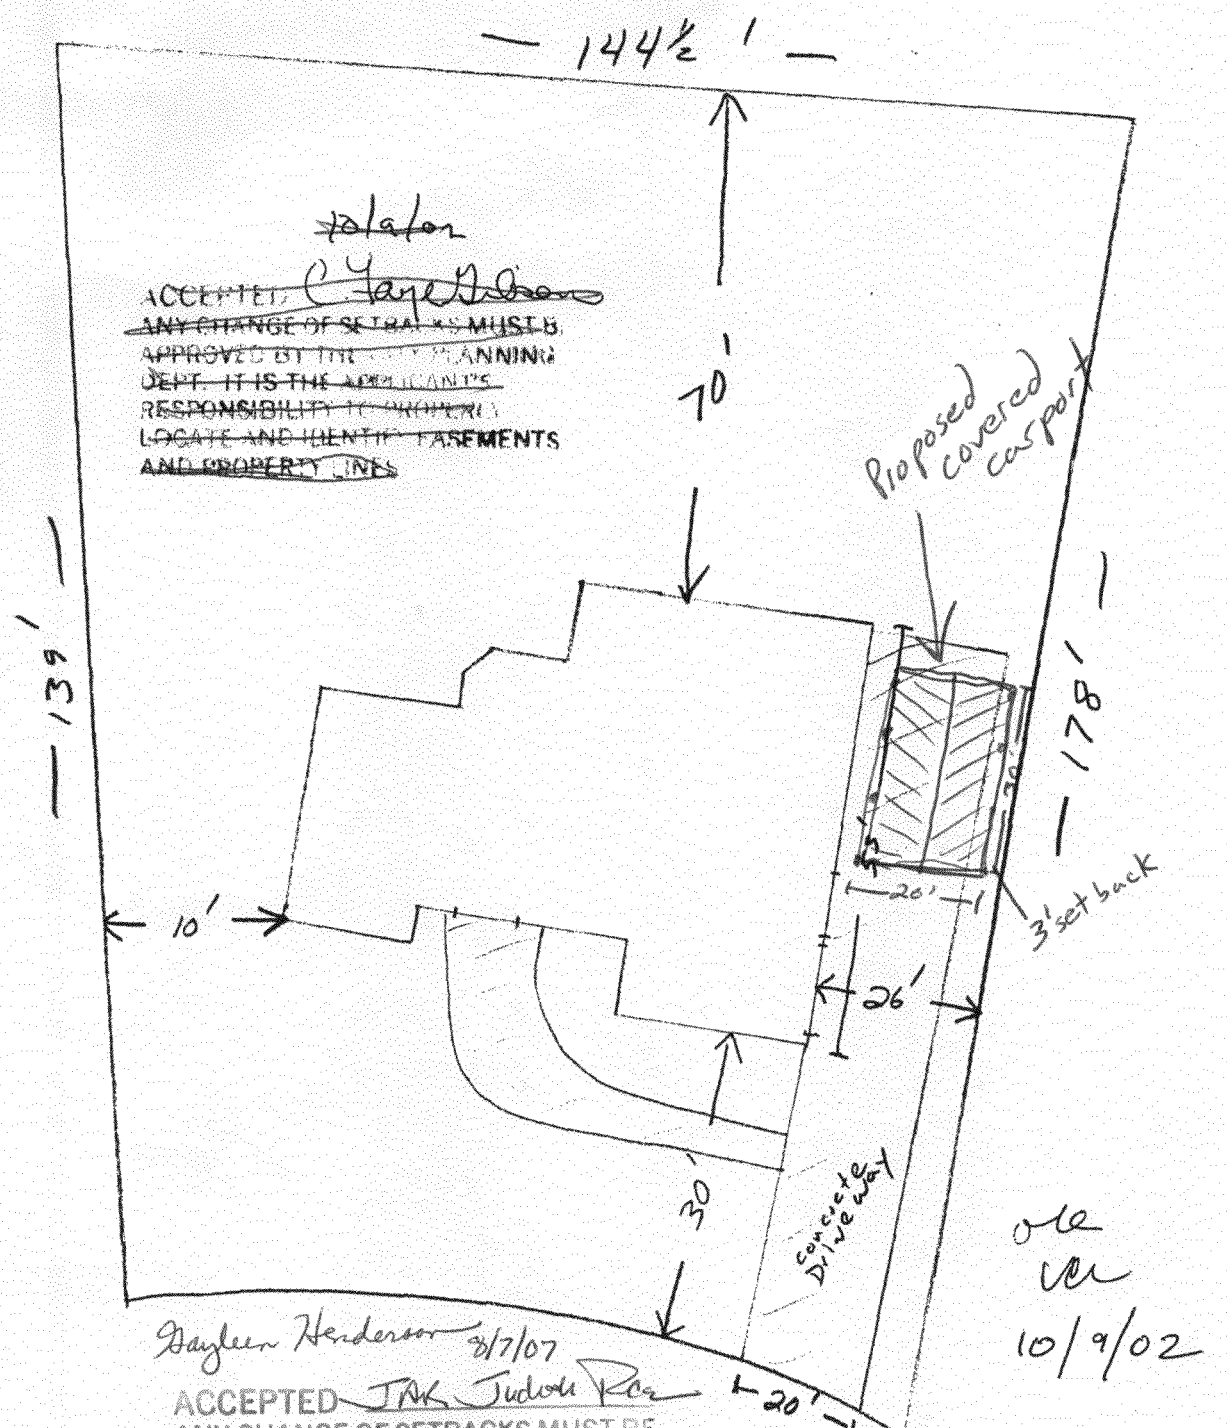 144½'
10/9/02
ACCEPTED C Faye Gibson
ANY CHANGE OF SETBACKS MUST BE
APPROVED BY THE CITY PLANNING
DEPT. IT IS THE APPLICANT'S
RESPONSIBILITY TO PROPERLY
LOCATE AND IDENTIFY EASEMENTS
AND PROPERTY LINES
70'
Proposed
covered
carport
139'
178'
20'
3' setback
10'
26'
30'
concrete
Driveway
10/9/02
Gayleen Henderson 8/7/07
ACCEPTED JAR Judah
20'
ANY CHANGE OF SETBACKS MUST BE